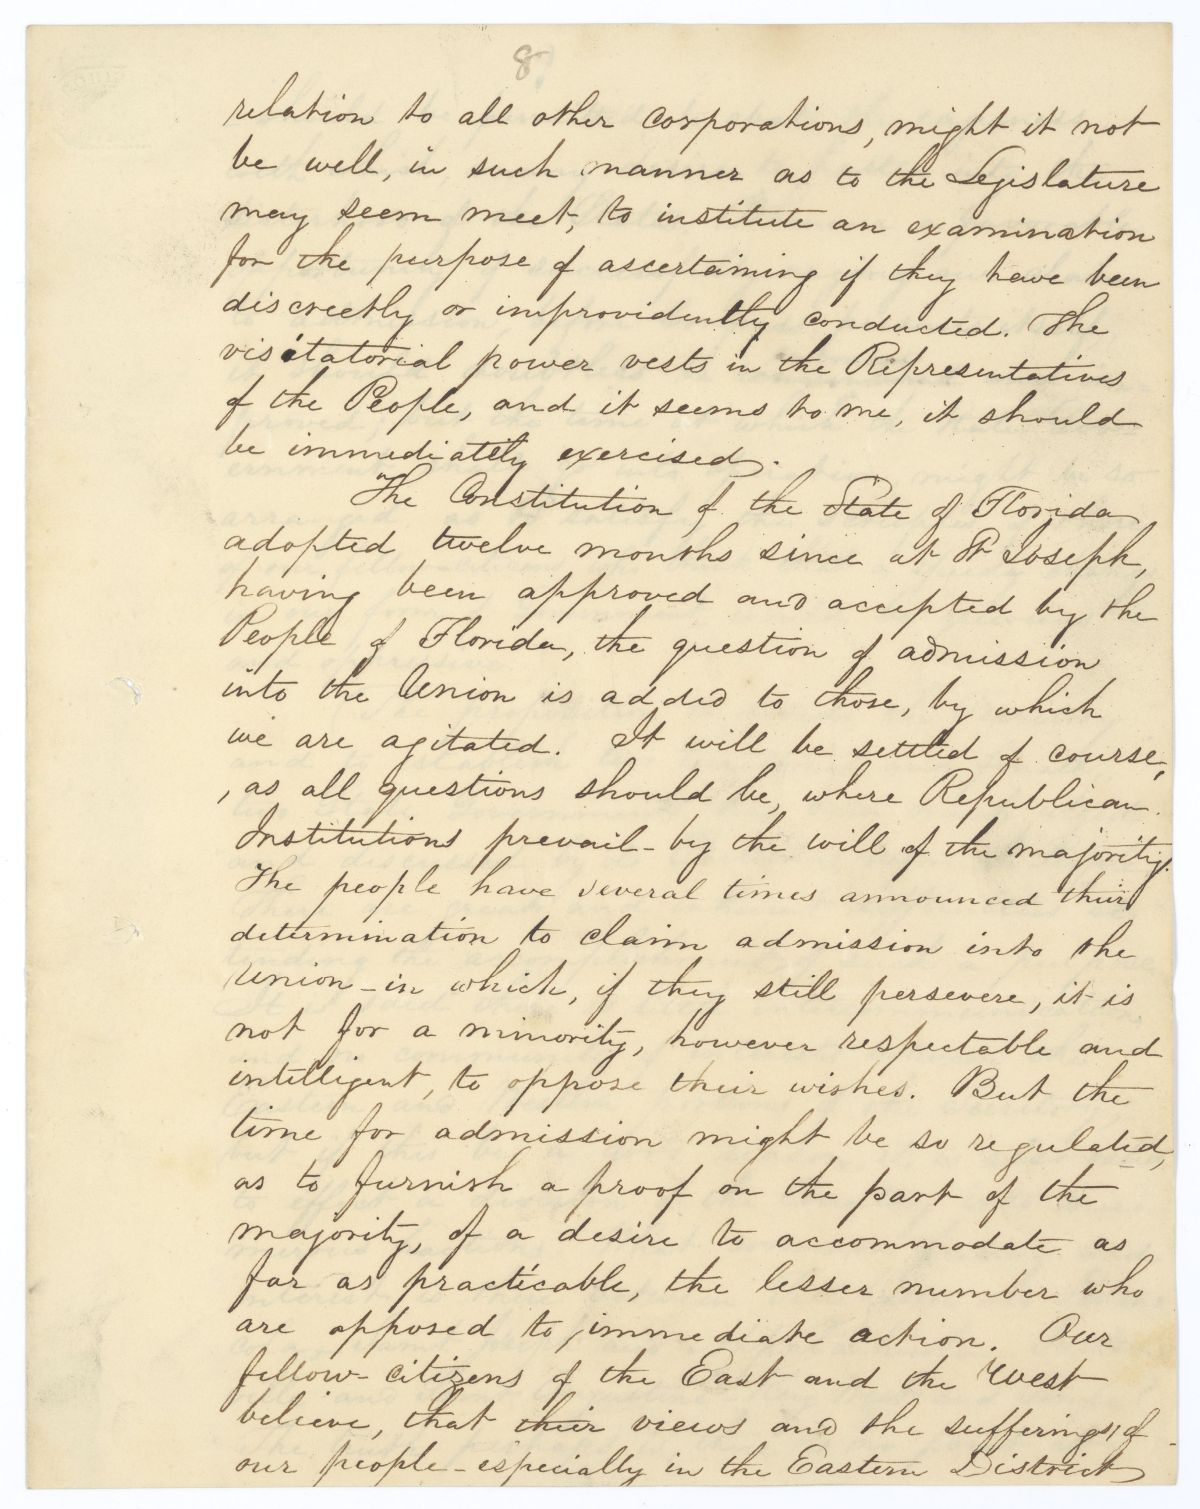 8
relation to all other corporations, might it not
be well, in such manner as to the Legislature
may seem meet, to institute an examination
for the purpose of ascertaining if they have been
discreetly or improvidently conducted. The
visitatorial power vests in the Representatives
of the People, and it seems to me, it should
be immediately exercised.
The Constitution of the State of Florida
adopted twelve months since at St Joseph,
having been approved and accepted by the
People of Florida, the question of admission
into the Union is added to those, by which
we are agitated. It will be settled of course,
, as all questions should be, where Republican
Institutions prevail - by the will of the majority.
The people have several times announced their
determination to claim admission into the
Union - in which, if they still persevere, it is
not for a minority, however respectable and
intelligent, to oppose their wishes. But the
time for admission might be so regulated,
as to furnish a proof on the part of the
majority, of a desire to accommodate as
far as practicable, the lesser number who
are opposed to immediate action. Our
fellow-citizens of the East and the West
believe, that their views and the sufferings of
our people - especially in the Eastern District